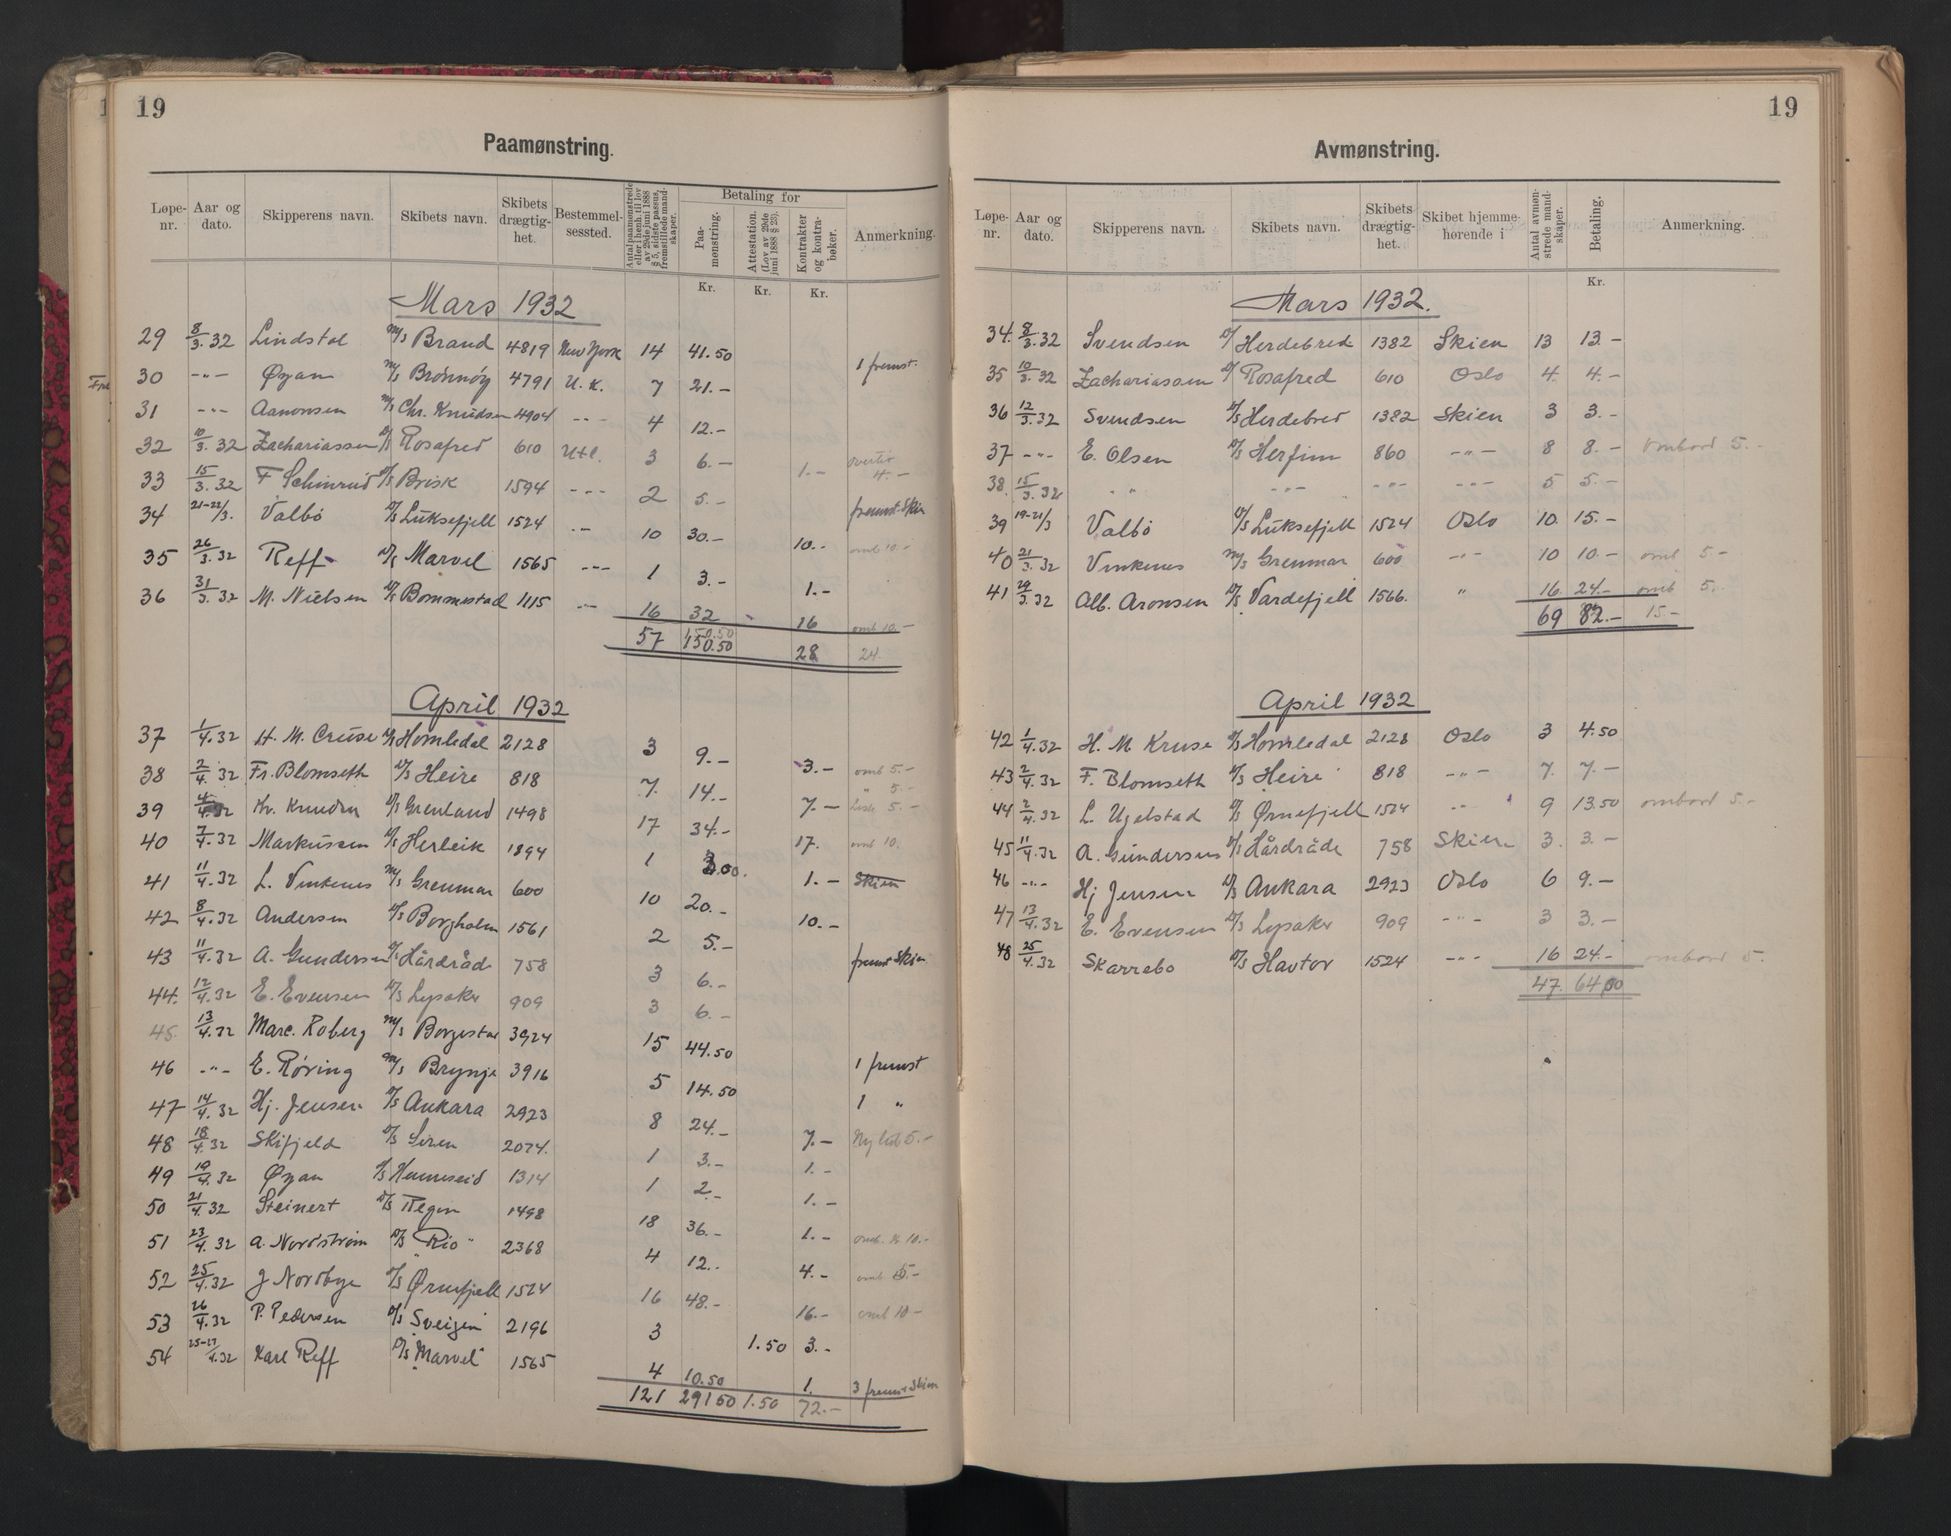 19
Paamønstring.
Løpe-nr. Aar og dato. Skipperens navn. Skibets navn. Skibets drægtighet. Bestemmelsessted. Antal paamønstrede eller i henh. til lov av 29de juni 1888 § 5, sidste passus, fremstillede mandskaper. Betaling for Paamønstring. Attestation. (Lov av 29de juni 1888 § 23). Kontrakter og kontrabøker. Anmerkning.
Kr. Kr. Kr.
Mars 1932
29 8/3.32 Lindstøl M/S Brand 4819 New York 14 41.50
30 -"- Øyan M/S Brønnøy 4791 U.K. 7 21.- 1 fremst.
31 -"- Aanonsen M/S Chr. Knudsen 4904 -"- 4 12.-
32 10/3.32 Zachariassen D/S Rosafred 610 Utl. 3 6.- 1.- overtid 4.-
33 15/3.32 F Schinrud D/S Brisk 1594 -"- 2 5.- fremst. Skien
34 21-22/3. Valbö D/S Luksefjell 1524 -"- 10 30.- 10.- omb 10.-
35 26/3.32 Reff D/S Marvel 1565 -"- 1 3.- 1.-
36 31/3.32 M. Nielsen D/S Bommestad 1115 -"- 16 32 16 omb 10.-
57 150.50 28 24
April 1932
37 1/4.32 H. M. Cruse D/S Homledal 2128 3 9.- 3.- omb 5.-
38 2/4.32 Fr. Blomseth D/S Heire 818 7 14.- 7.- " 5.-
39 4/4.32 Kr. Knudsen D/S Grenland 1498 17 34.- 17. 5.-
40 7/4.32 Markussen D/S Herleik 1894 1 3.00. 1.- omb 10.
41 11/4.32 L. Vinkenes M/S Grenmar 600 10 20.- 10.- Skien
42 8/4.32 Andersen D/S Borgholm 1561 2 5.-
43 11/4.32 A. Gundersen D/S Hårdråde 758 3 6.- fremst Skien
44. 12/4.32 E. Evensen D/S Lysaker 909 3 6.-
45. 13/4.32 Marc. Roberg M/S Borgestad 3924 15 44.50
46 -"- E. Røring M/S Brynje 3916 5 14.50 1 fremst
47 14/4.32 Hj. Jensen D/S Ankara 2923 8 24.- 7.- 1 "
48 18/4.32 Skifjeld D/S Siren 2074. 1 3.- 1.- 5.-
49 19/4.32 Øyan D/S Henneseid 1314 1 2.- 1.-
50 21/4.32 Steinert D/S Regin 1498 18 36.- 1.-
51 23/4.32 A. Nordstrøm D/S "Rio" 2368 4 12.. 4.- omb. 10.-
52 25/4.32 J Nordbye D/S Ørnefjell 1524 16 48.- 16.- omb 5.-
53 26/4.32 P. Pedersen D/S Sveigen 2196 3 1.50 3.- omb 10-
54 25-27/4.32 Karl Reff D/S "Marvel" 1565 4 10.50 1. 3 fremst Skien
121 291 50 1.50 72.-
19
Avmønstring.
Løpe-nr. Aar og dato. Skipperens navn. Skibets navn. Skibets drægtighet. Skibet hjemmehørende i Antal avmønstrede mandskaper. Betaling. Anmerkning.
Kr.
Mars 1932.
34. 8/3.32 Svendsen D/ Herdebred 1382 Skien 13 13.-
35 10/3.32 Zachariassen D/ Rosafred 610 Oslo 4. 4.-
36 12/3.32 Svendsen D/S Herdebred 1382 Skien 3 3.-
37 -"- E. Olsen D/S Herfinn 860 -"- 8 8.- ombord 5.-
38. 15/3.32 -"- -"- -"- -"- 5 5.-
39 19-21/3 Valbö D/S Luksefjell 1524 Oslo 10. 15.-
40 21/3.32 Vinkenes M/S Grenmar 600 -"- 10 10.- omb 5-
41 29/3.32 Alb. Aronsen D/S Vardefjell 1566. " 16. 24.- omb 5.-
69 82.- 15.-
April 1932
42 1/4.32 H. M Kruse D/S Homledal 2128 Oslo 3 4.50
43 2/4.32 F. Blomseth D/S Heire 818 -"- 7. 7.-
44 2/4.32 L. Ugelstad D/S Ørnefjell 1524 -"- 9 13.50 ombord 5.-
45 11/4.32 A. Gundersen D/S Hårdråde 758 Skien 3. 3.-
46 -"- Hj Jensen D/S Ankara 2923 Oslo 6 9.-
47 13/4.32 E. Evensen D/S Lysaker 909 -"- 3 3.-
48 25/4.32 Skarrebo D/S Havtor 1524 -"- 16 24.- ombord 5.
47. 64.00